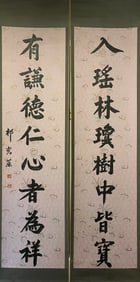 入瑤林瓊樹中皆寶
有謙德仁心者為祥